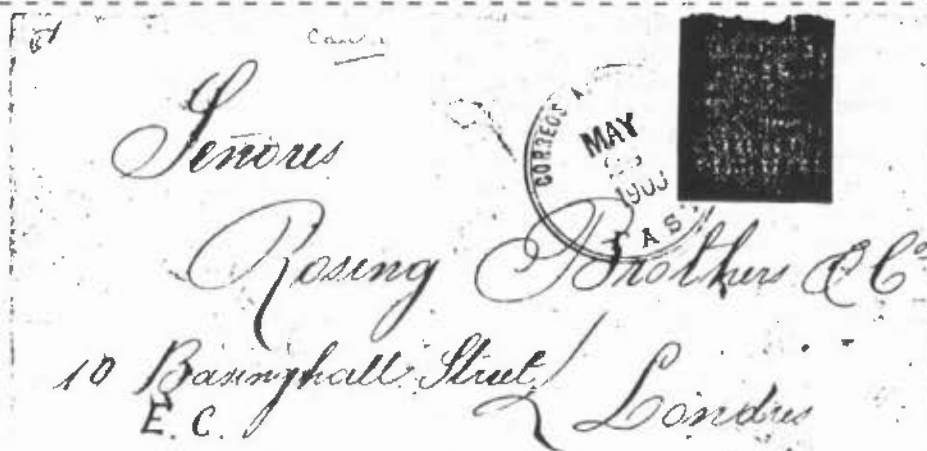 Señores
CORREOS
MAY
190
AS
Rosing Brothers & Co
10 Basinghall Street
E. C. Londres